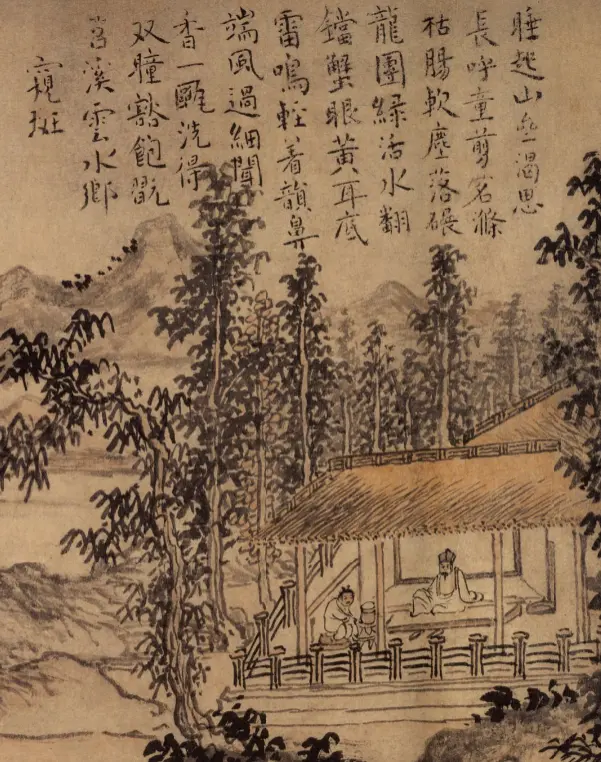 睡起山亝渴思
長呼童剪茗滌
枯腸軟塵落碾
龍團綠活水翻
鐺蟹眼黃耳底
雷鳴輕着韻鼻
端風過細聞
香一甌洗得
双瞳豁飽翫
苕溪雲水鄉